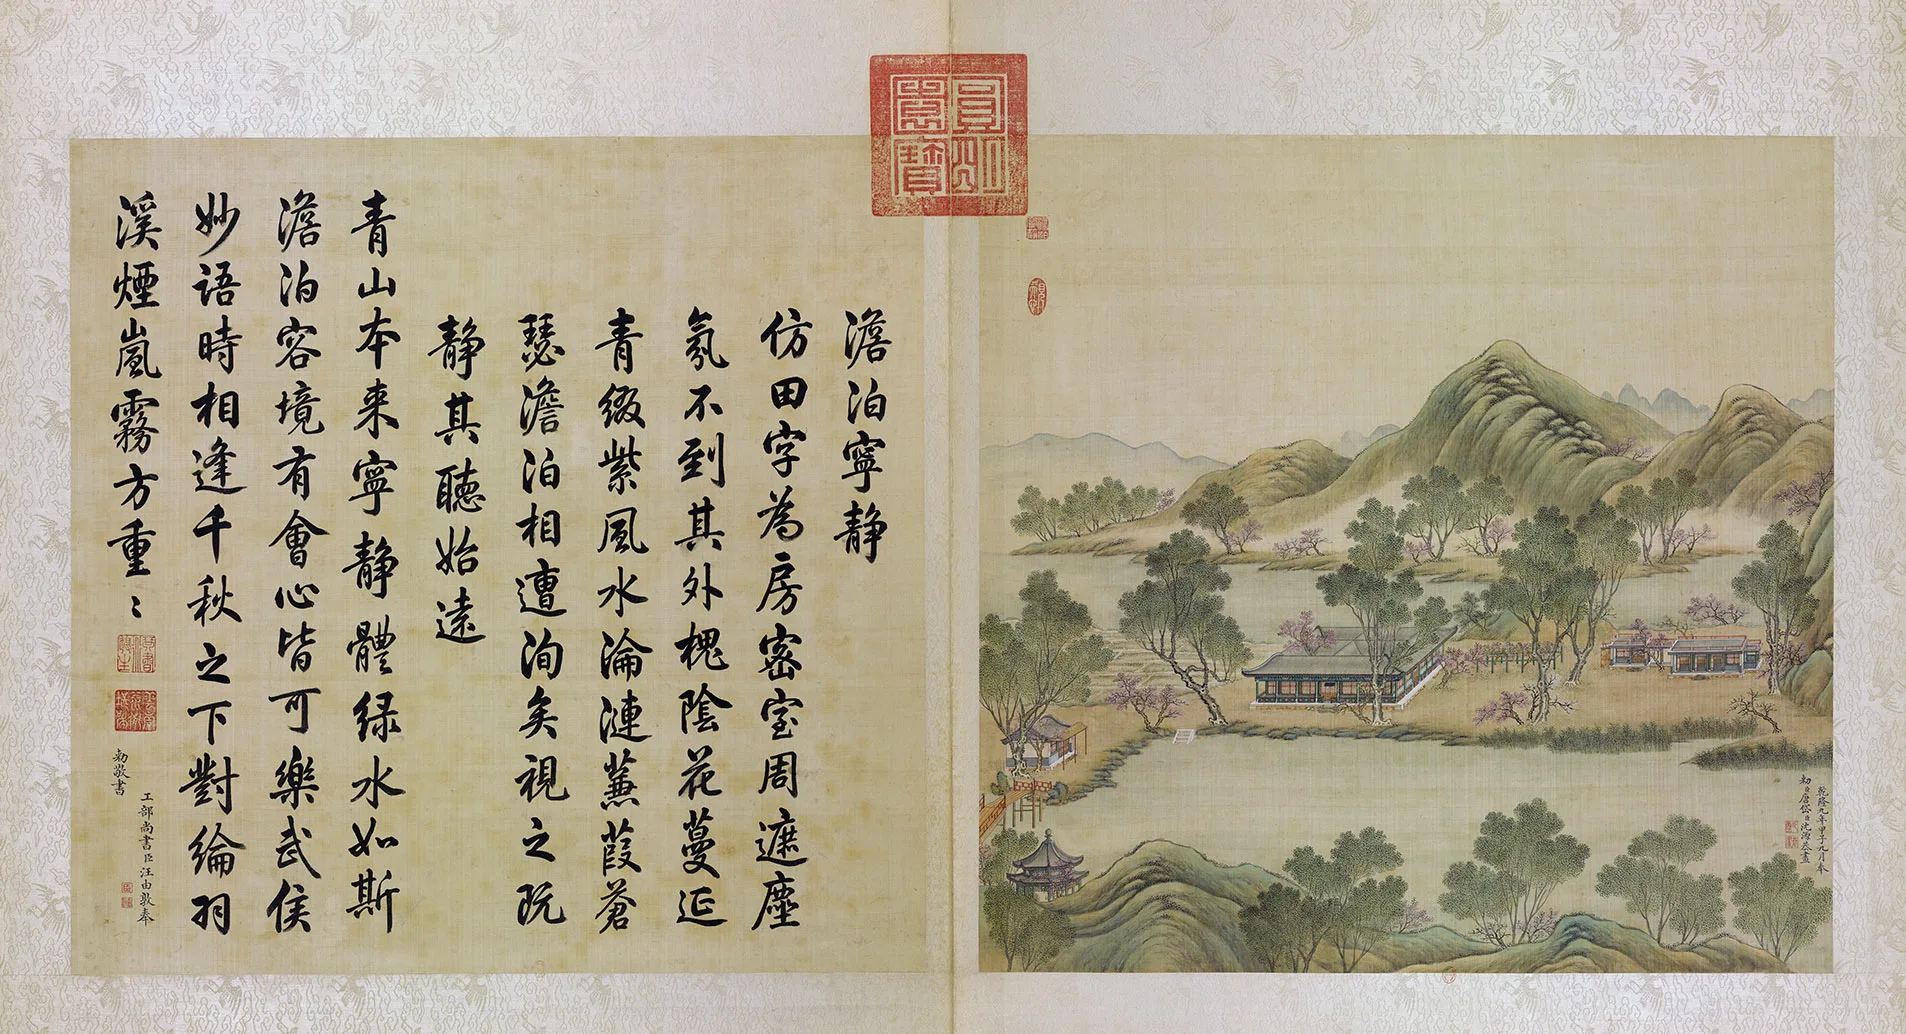 乾隆九年甲子九月奉
勅臣唐岱臣沈源恭畫
圓明
園寶
澹泊寧靜
仿田字為房密室周遮塵
氛不到其外槐陰花蔓延
青綴紫風水淪漣蒹葭蒼
瑟澹泊相遭洵矣視之既
靜其聽始遠
青山本来寧靜體緑水如斯
澹泊容境有會心皆可樂武侯
妙語時相逢千秋之下對綸羽
溪煙嵐霧方重〻
工部尚書臣汪由敦奉
勅敬書